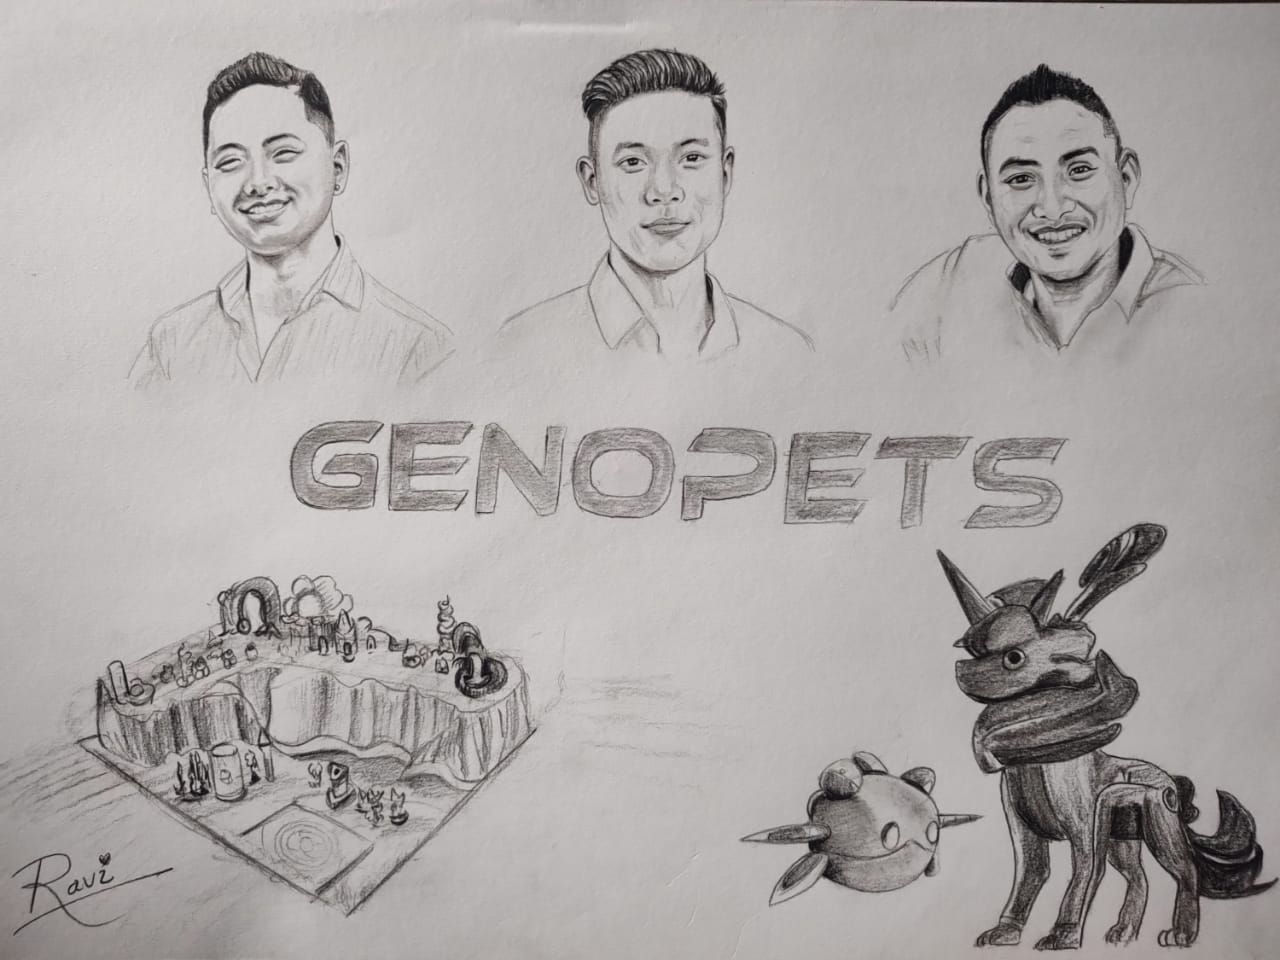 GENOPETS
Ravi